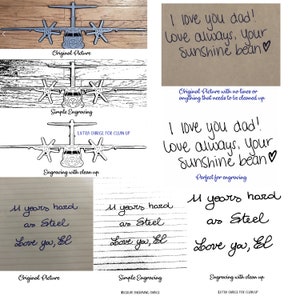 Original Picture
Simple Engraving
EXTRA CHARGE FOR CLEAN UP
Engraving with clean up
I love you dad!
Love always, your
sunshine bean♡
Original Picture with no lines or
anything that needs to be cleaned up
I love you dad!
Love always, your
sunshine bean♡
Perfect for engraving
11 years hard
as Steel
Love ya, El
Original Picture
11 years hard
as Steel
Love ya, El
Simple Engraving
11 years hard
as Steel
Love ya, El
Engraving with clean up
EXTRA CHARGE FOR CLEAN UP